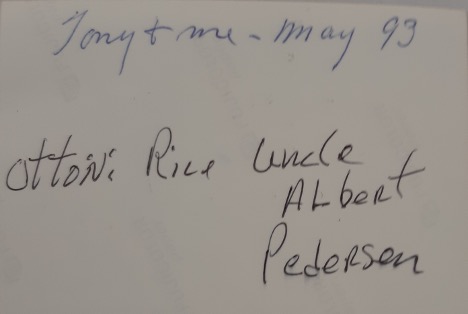 Tony + me - May 93
Otton: Rice Uncle
Albert
Pedersen